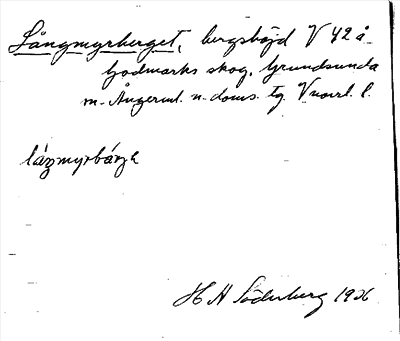 Långmyrberget, bergshöjd V 42 å
Godmarks skog, Grundsunda
m. Ångerml. n. doms. tg. Vnorrl. l.
låŋmyrbärje
H A Söderberg 1936